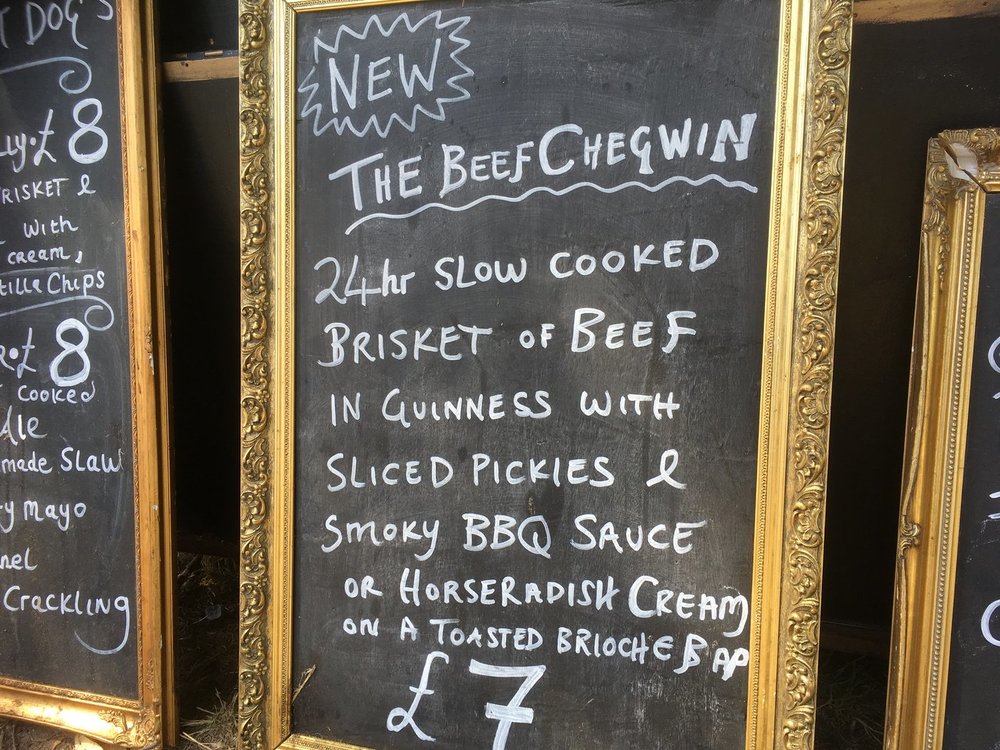 T DOG'S
LLY.£8
RISKET &
with
cream,
tilla Chips
R.£8
cooked
Ale
made Slaw
y mayo
nel
Crackling
NEW
THE BEEF CHEGWIN
24hr SLOW COOKED
BRISKET OF BEEF
IN GUINNESS WITH
SLICED PICKLES &
SMOKY BBQ SAUCE
OR HORSERADISH CREAM
ON A TOASTED BRIOCHE BAP
£7